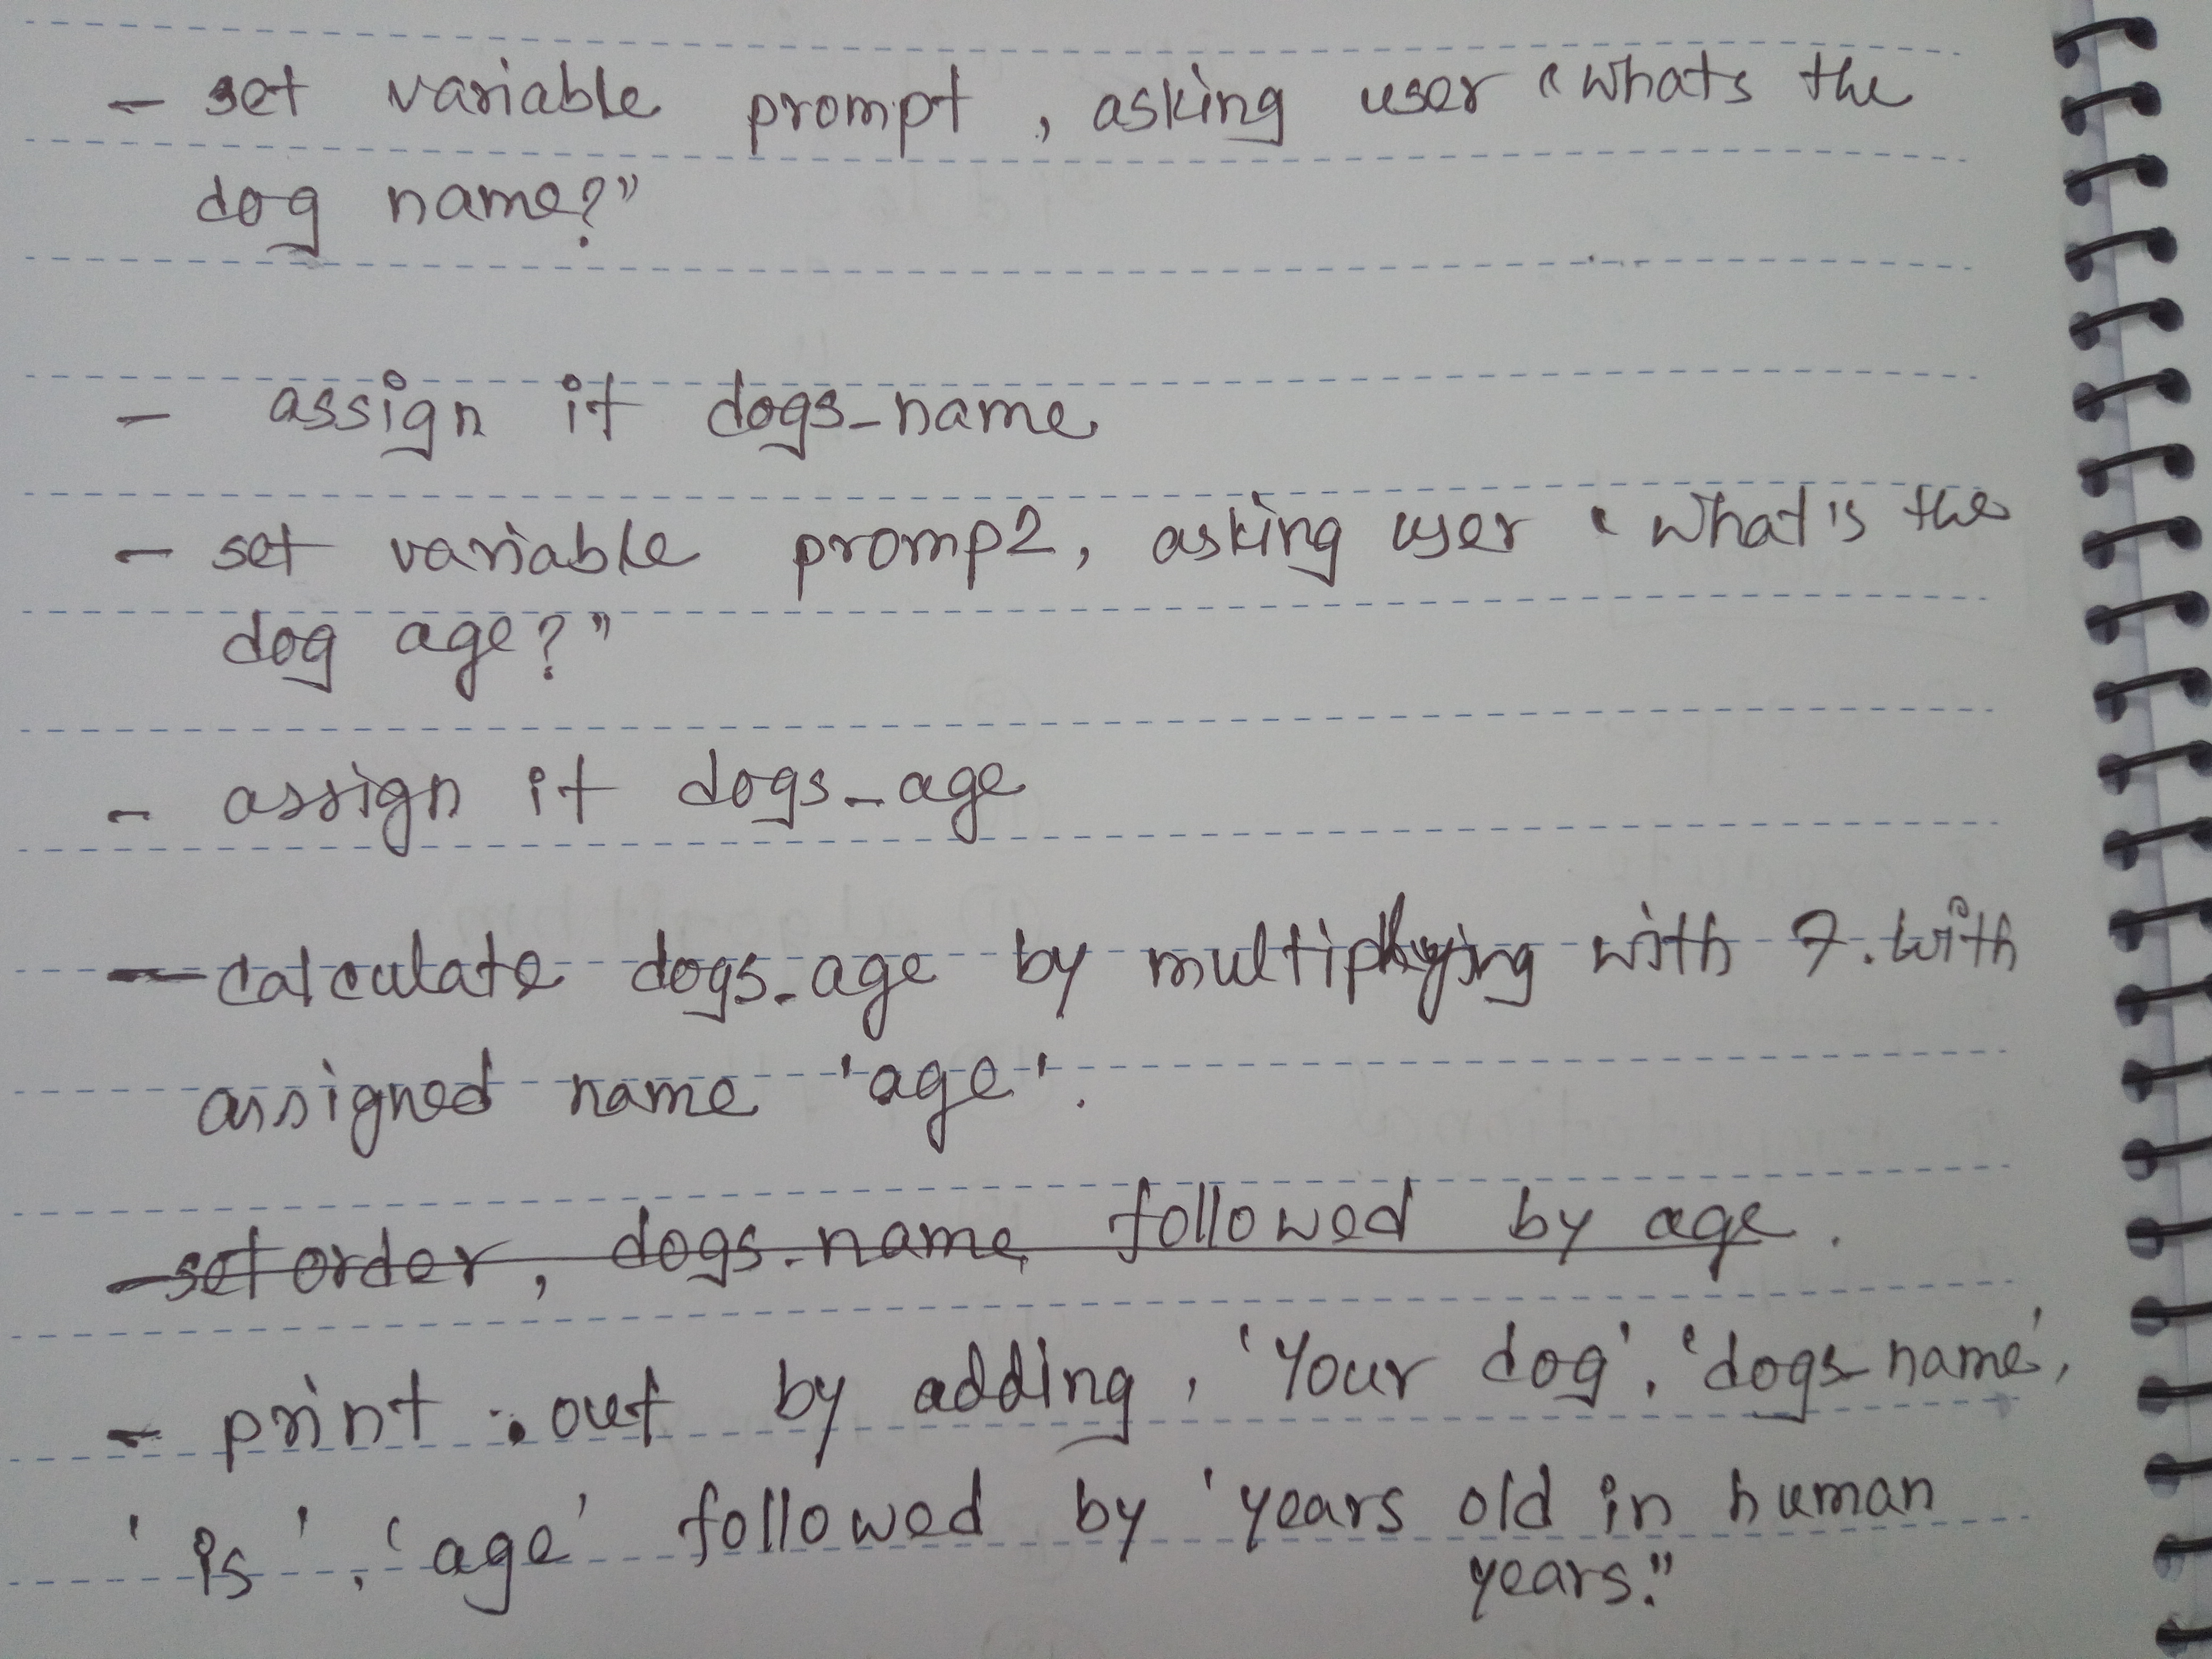 - set variable prompt, asking user "whats the
dog name?"
- assign it dogs_name
- set variable promp2, asking user "what is the
dog age?"
- assign it dogs_age
- calculate dogs_age by multiplying with 7. with
assigned name 'age'.
- set order, dogs_name followed by age.
- print out by adding, 'Your dog', 'dogs_name',
'is', 'age' followed by 'years old in human
years."